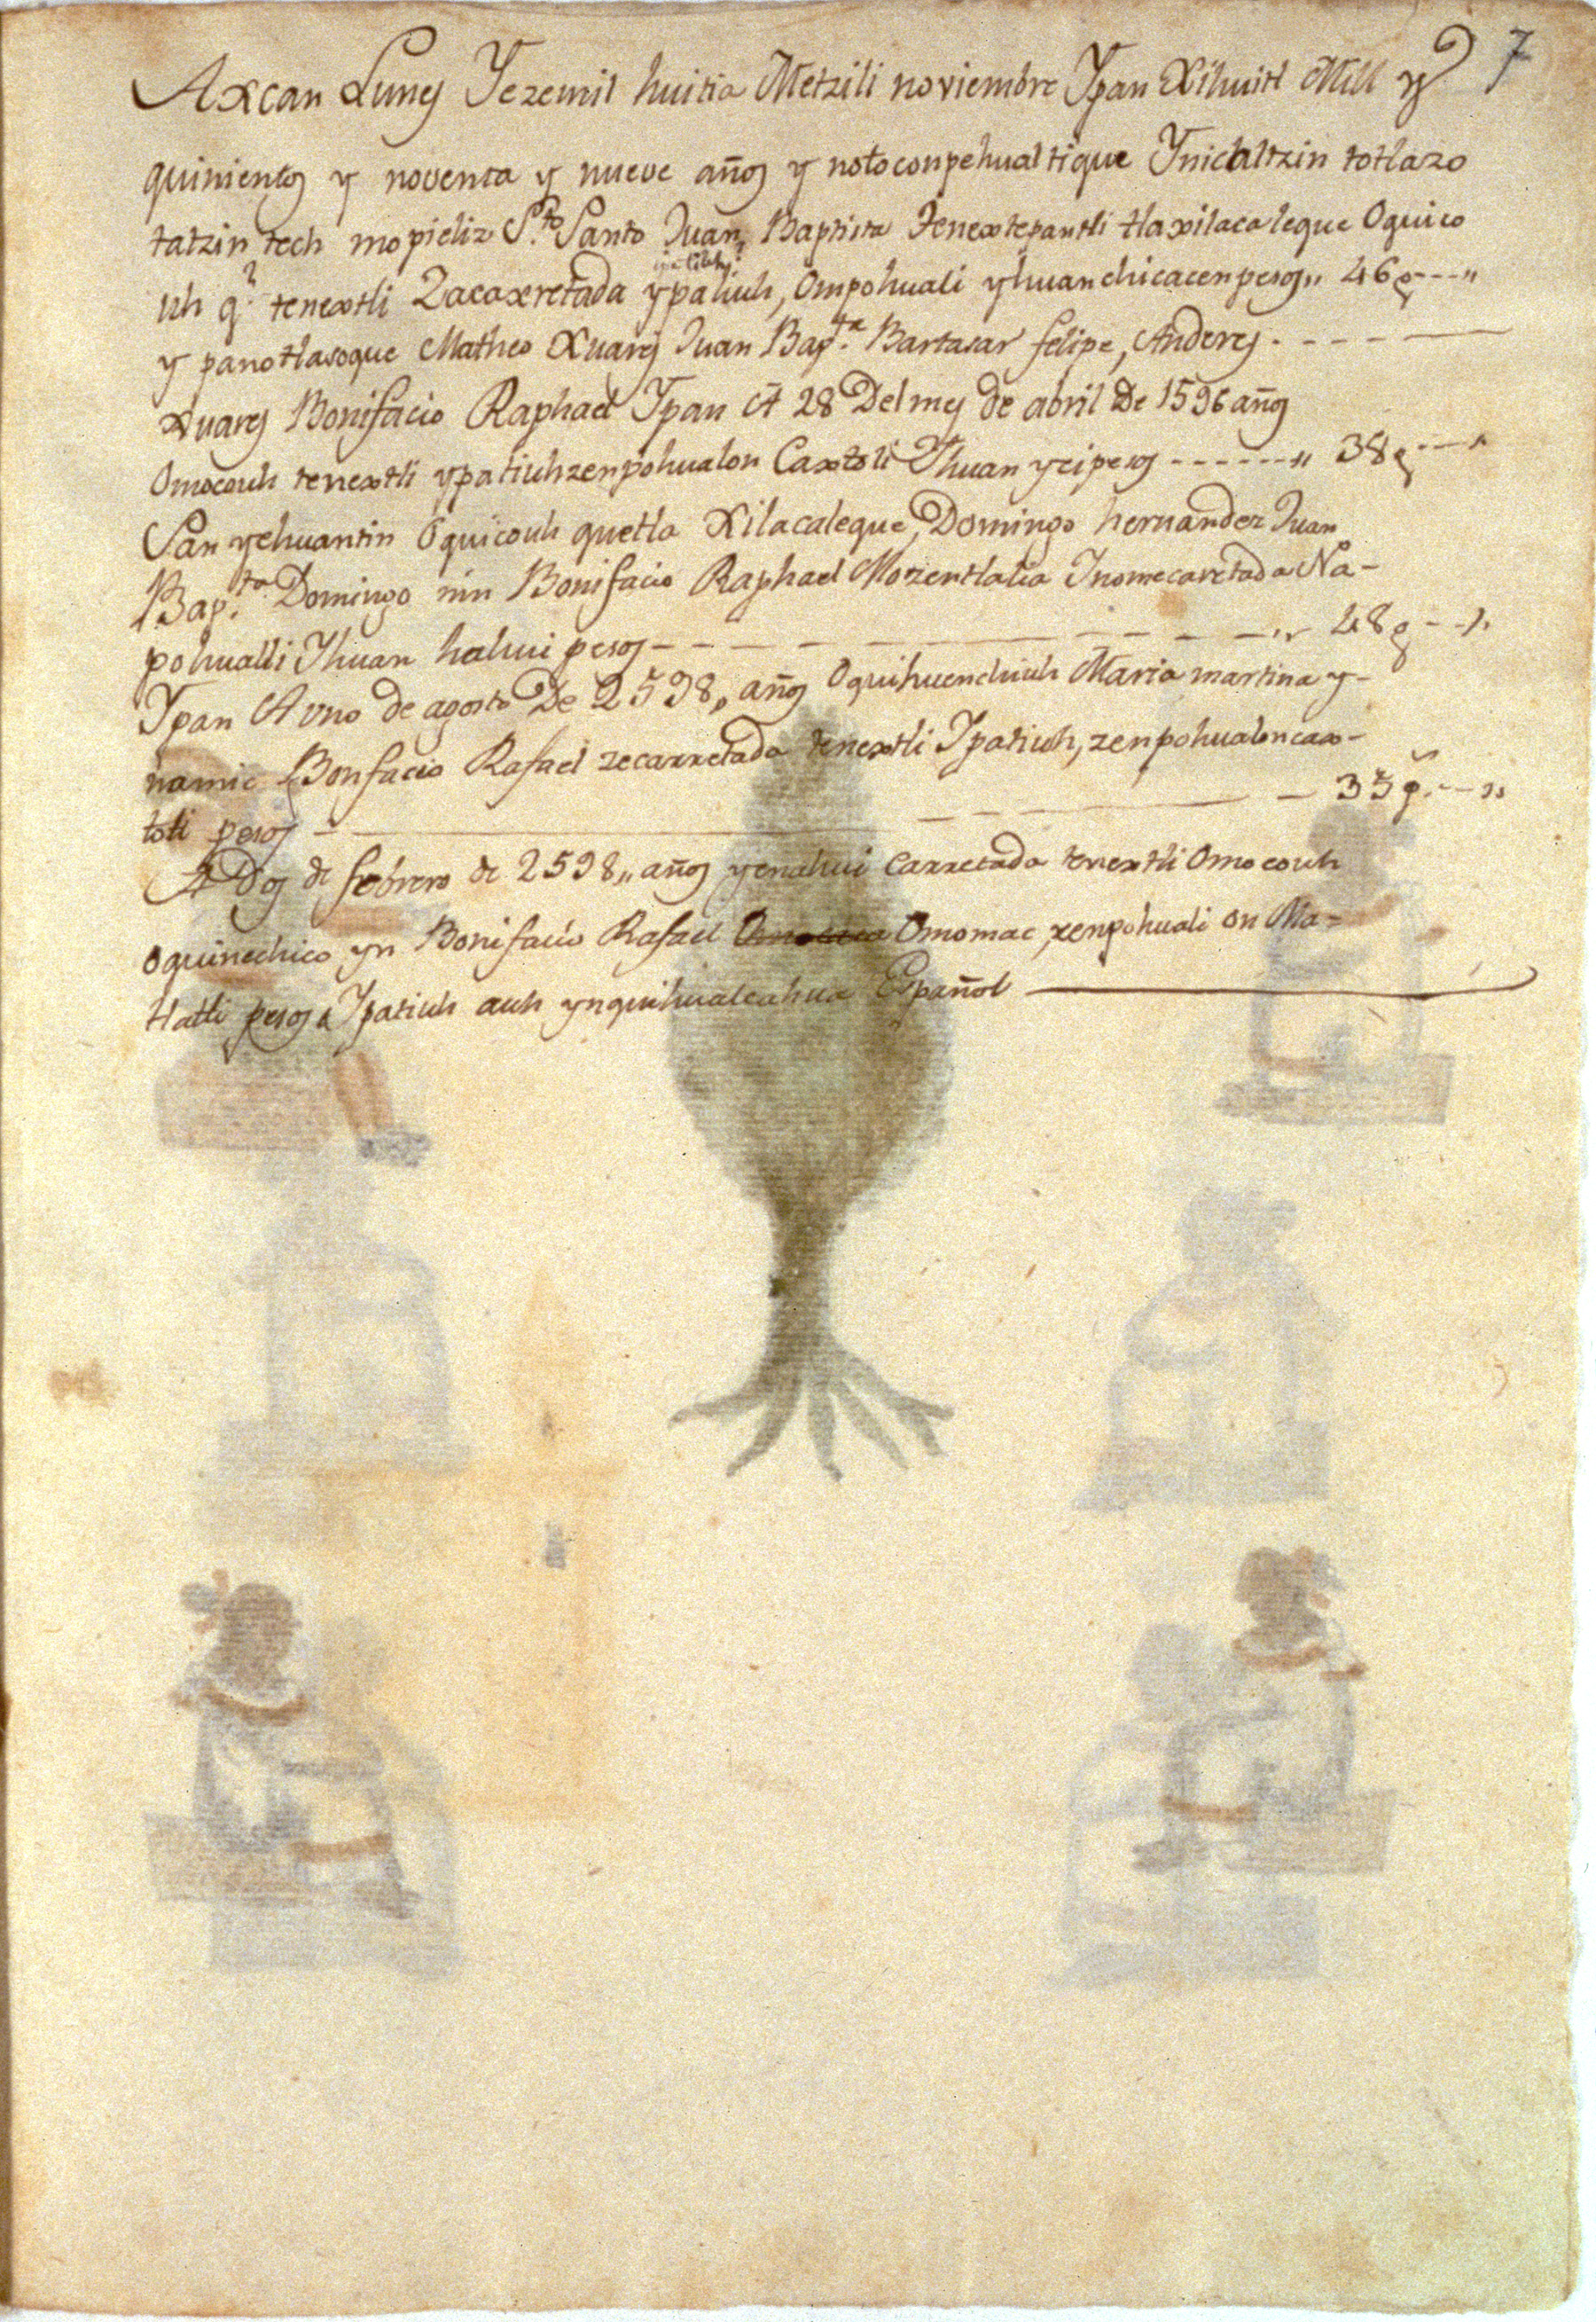 7
Axcan Luneς Yezemil huitia Metzili noviembre Ypan Xihuitl Mill y
quinientos y noventa y nueve años y notoconpehualtique Ynichaltzin totlazo
tatzin tech mopieliz S.to Santo Juan, Baptista tenextepantli tlaxilacaleque Oquico
uh q.e tenextli Zacaxretada ypatiuh, Ompohuali yhuan chicacenpesos,, 46 p---,,
y panotlasoque Matheo Xuares Juan Bap.ta Bartasar felipe, Anderes - - - -
Xuares Bonifacio Raphael Ypan A 28 Del mes de abril De 1596 años
Omocouh tenextli ypatiuh zenpohualon Caxtoli Yhuan yei pesos ------,, 38 p---,,
San yehuantin Oquicouh quetla Xilacaleque, Domingo hernandez Juan
Bap.ta Domingo nin Bonifacio Raphael Mozentlalia Ynomecaretada Na-
pohualli Yhuan hahui pesos - - - - - - - ,, 48 p - -,,
Ypan A vno de agosto De 2598,, años Oquihuenchiuh Maria martina y-
namic Bonfacio Rafael zecarretada tenextli Ypatiuh, zenpohualoncax-
toli pesos - - - - - 35 p. - -,,
A Dos de febrero de 2598,, años yenahui Carretada tenextli Omocouh
oquinechico yn Bonifacio Rafael Omomac, zenpohuali on Ma=
tlatli pesos Ypatiuh auh ynquihualcahua Español